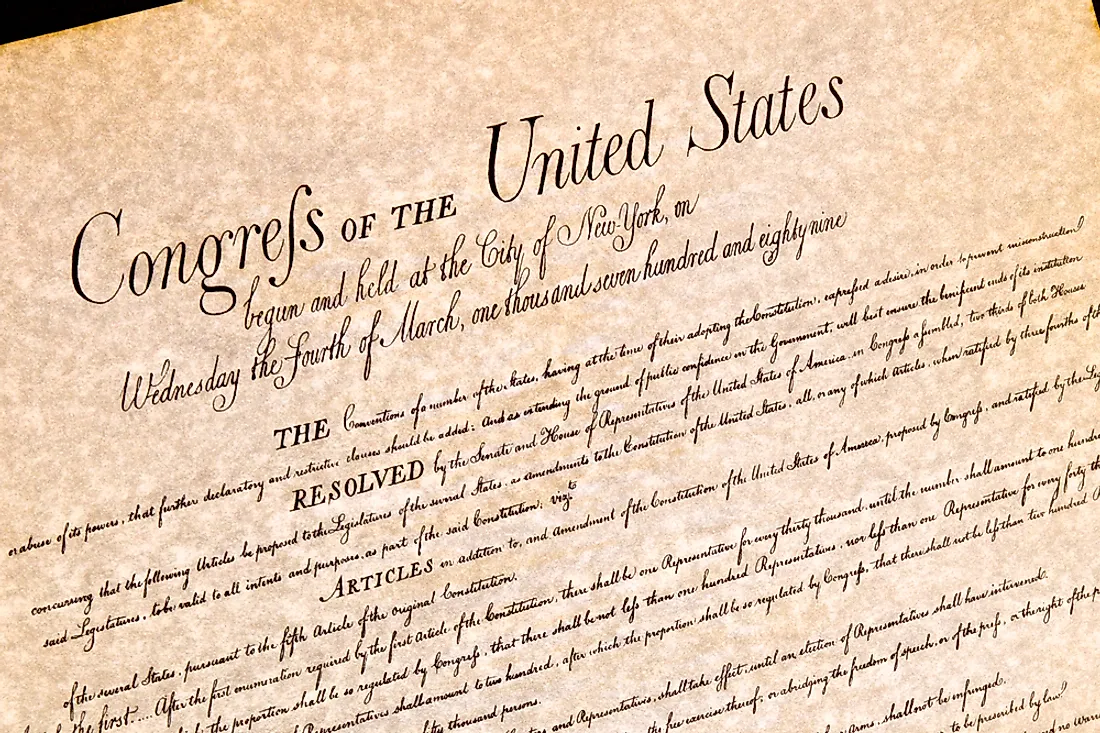 Congreſs OF THE United States
begun and held at the City of New-York, on
Wednesday the Fourth of March, one thousand seven hundred and eighty nine
THE Conventions of a number of the States, having at the time of their adopting the Constitution, expreſsed a desire, in order to prevent misconstruction
or abuse of its powers, that further declaratory and restrictive clauses should be added: And as extending the ground of public confidence in the Government, will best ensure the benificent ends of its institution
RESOLVED by the Senate and House of Representatives of the United States of America, in Congreſs aſsembled, two thirds of both Houses
concurring that the following Articles be proposed to the Legislatures of the several States, as amendments to the Constitution of the United States, all, or any of which Articles, when ratified by three fourths of the
said Legislatures, to be valid to all intents and purposes, as part of the said Constitution; vizt
ARTICLES in addition to, and Amendment of the Constitution of the United States of America, proposed by Congreſs, and ratified by the Leg
of the several States, pursuant to the fifth Article of the original Constitution.
the first.... After the first enumeration required by the first Article of the Constitution, there shall be one Representative for every thirty thousand, until the number shall amount to one hundre
the proportion shall be so regulated by Congreſs, that there shall be not leſs than one hundred Representatives, nor leſs than one Representative for every forty th
Representatives shall amount to two hundred, after which the proportion shall be so regulated by Congreſs, that there shall not be leſs than two hundred
thousand persons.
and Representatives, shall take effect, until an election of Representatives shall have intervened.
the free exercise thereof, or abridging the freedom of speech, or of the preſs, or the right of the p
Arms, shall not be infringed.
to be prescribed by law.
and no Warr